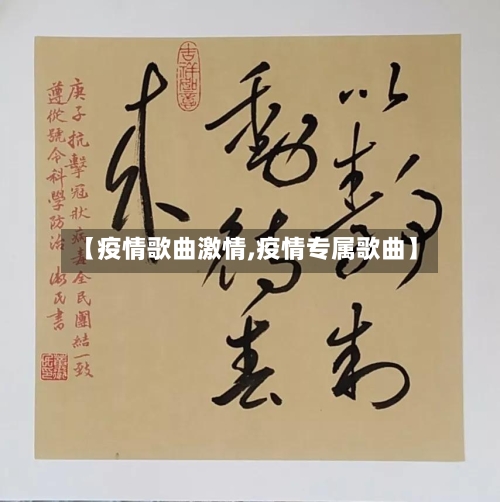 以靜制
動待春
来
吉祥如意
庚子抗擊冠狀病毒全民團結一致
遵從號令科學防治 民書
【疫情歌曲激情,疫情专属歌曲】